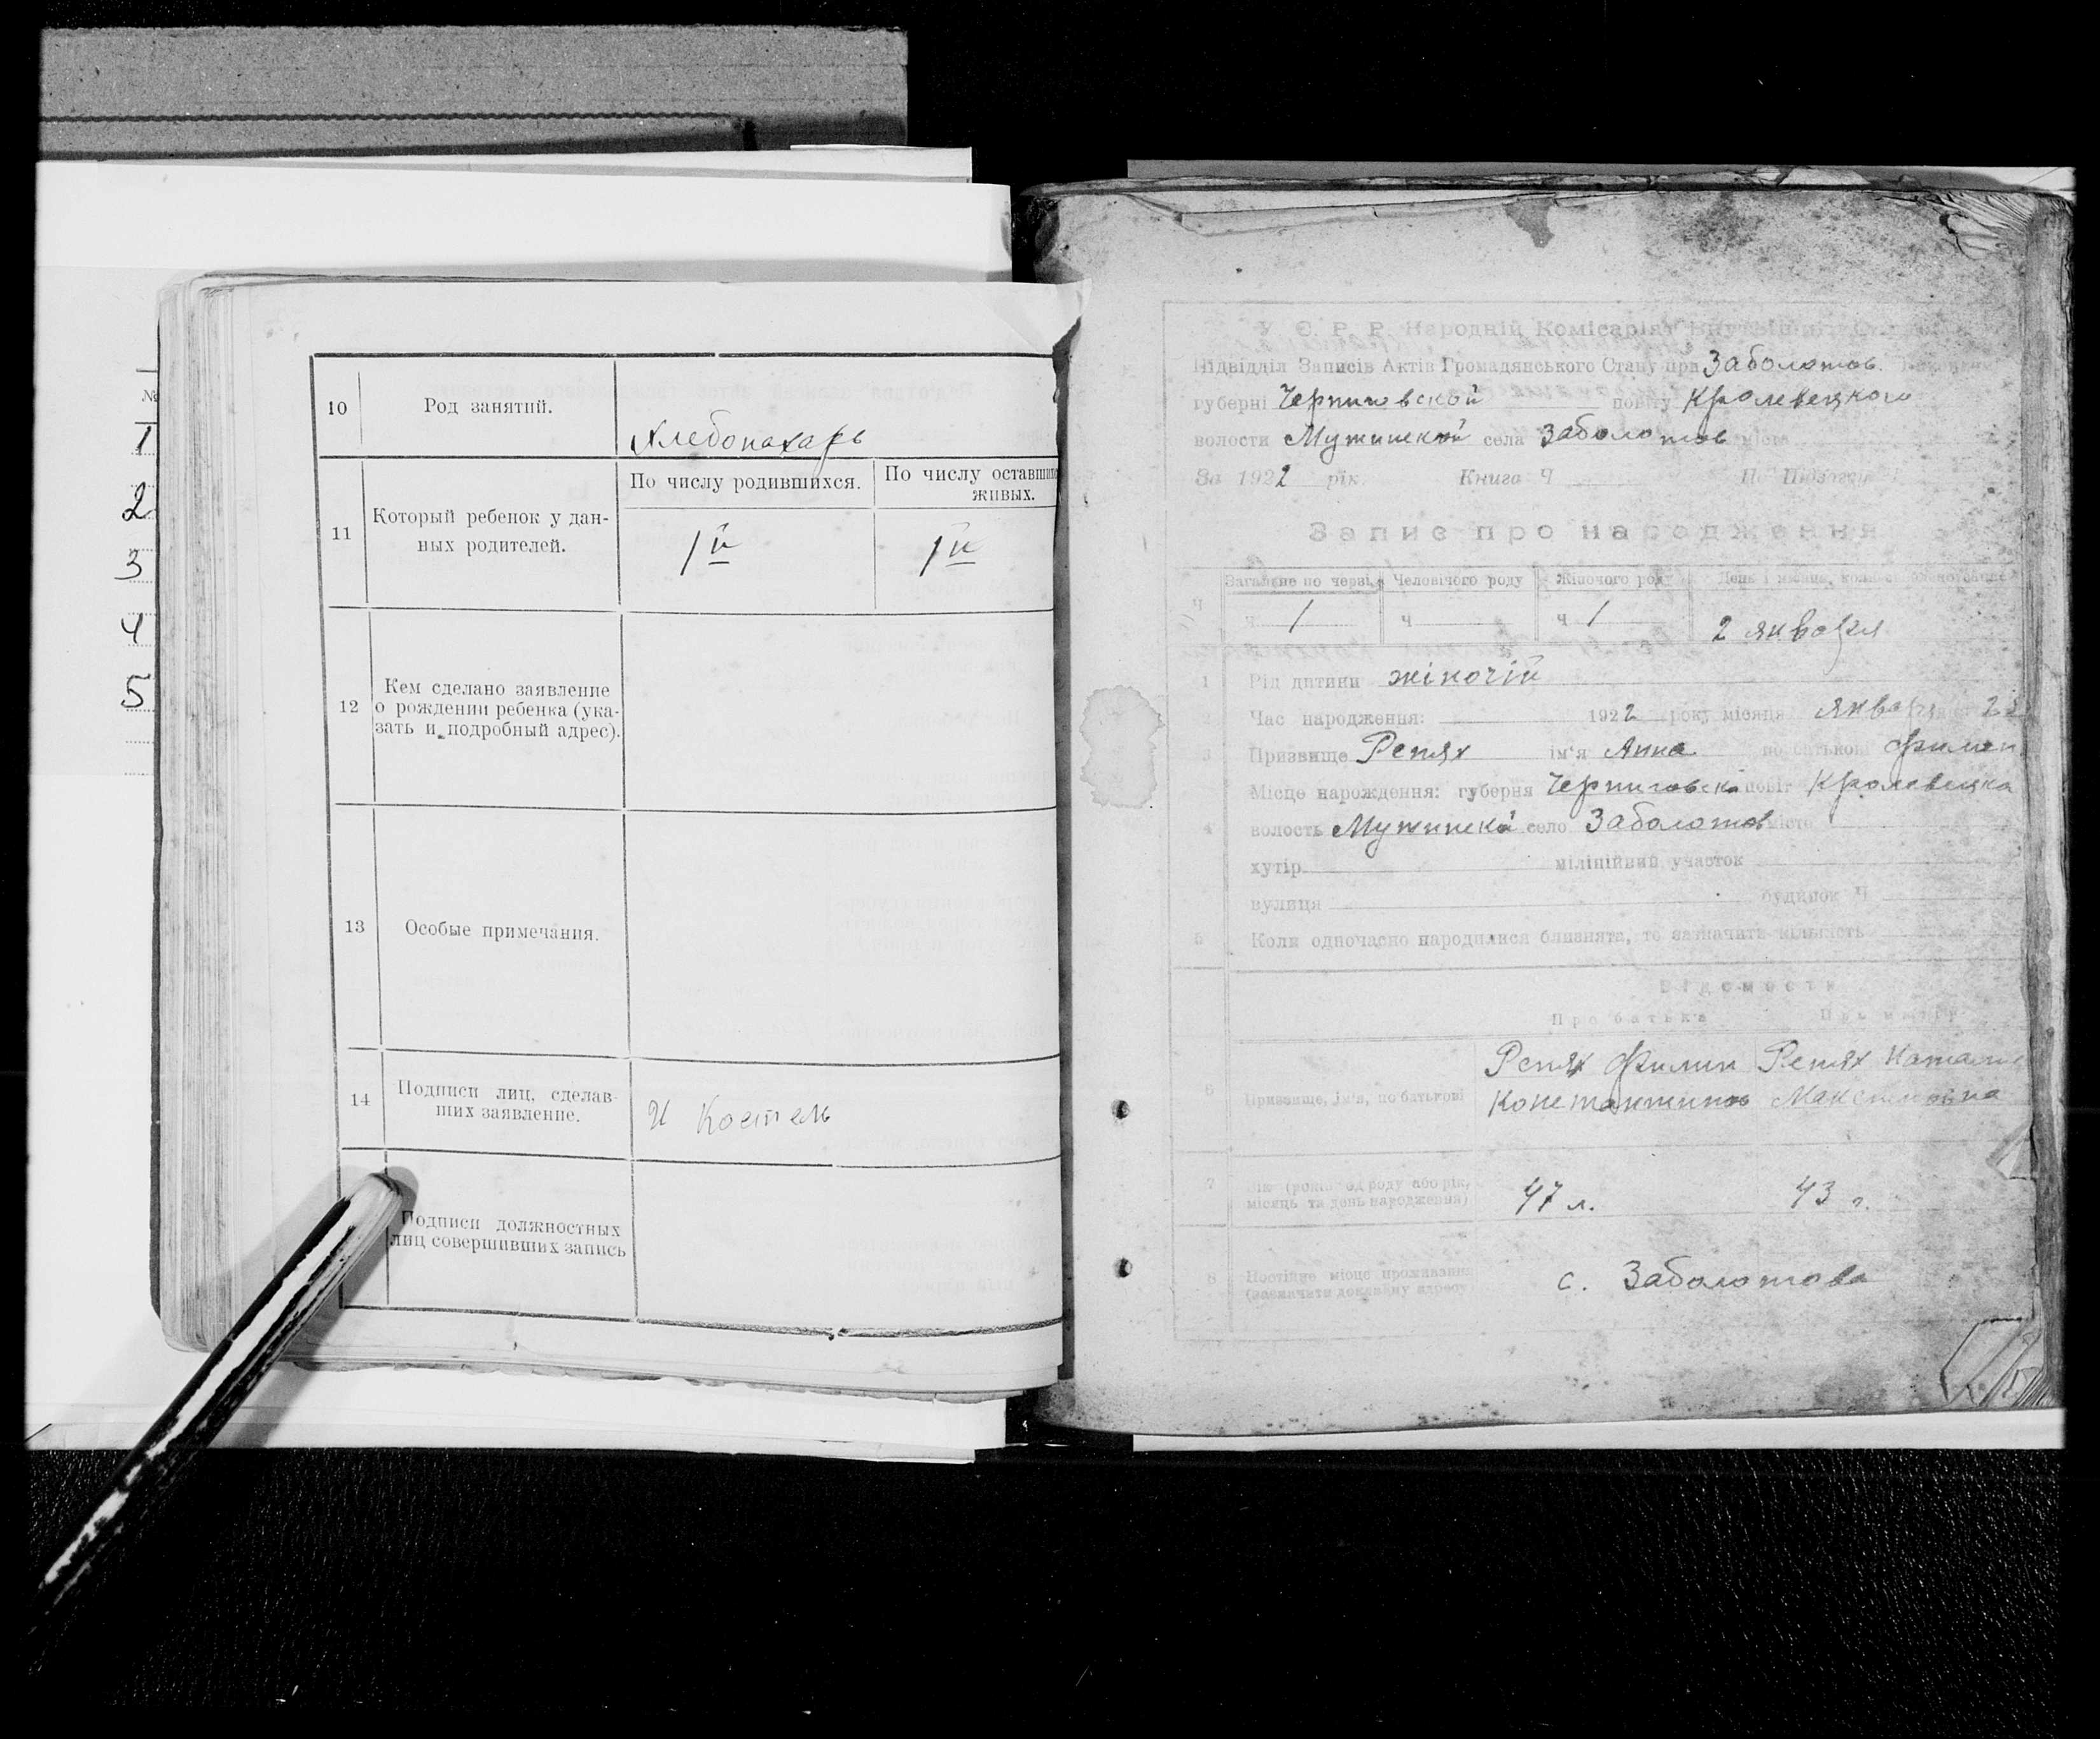 №
1
2
3
4
5
10 Род занятий. Хлебопахарь
По числу родившихся. По числу
живых.
11 Который ребенок у дан-
ных родителей.
1й 1й
12 Кем сделано заявление
о рождении ребенка (ука-
зать и подробный адрес).
13 Особые примечания.
14 Подписи лиц, сделав-
ших заявление.
И Костель
Подписи должностных
лиц совершивших запись
У. С. Р. Р. Народній Комісаріят
Відвідділ Записів Актів Громадянського Стану при Заболотов.
губерні Черниговской повіту Кролевецкого
волости села Заболотов міста
За 1922 рік. Книга Ч
Запис про народження
Загальне по черві Человічого роду Жіночого роду День і місяць, коли
Ч
ч 1 ч ч 1 2 января
1 Рід дитини жіночій
2 Час народження: 1922 року місяця января
3 Призвище Репях ім'я Анна по батькові Филип
Місце народження: губерня Черниговска повіт Кролевецка
4 волость село Заболотов місто
хутір міліційний участок
вулиця будинок Ч
5 Коли одночасно народилися близнята, то зазначить кількість
Відомости
Про батька Про матір
Репях Филип Репях
6 Призвище, ім'я, по батькові Константинов Максимовна
7
місяць та день народження) 47 л. 43 г.
8 Постійне місце проживання
с. Заболотова